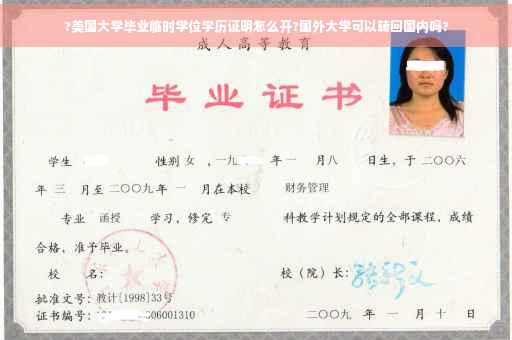 ?美国大学毕业临时学位学历证明怎么开?国外大学可以转回国内吗?
成人高等教育
毕业证书
学生 性别 女 ,一九 年一 月八 日生,于二〇〇六
年 三 月至二〇〇九年 一 月在本校 财务管理
专业 函授 学习,修完 专 科教学计划规定的全部课程,成绩
合格,准予毕业。
校 名: 校(院)长:
批准文号:教计[1998]33号
证书编号: 06001310 二〇〇九 年 一 月 十 日